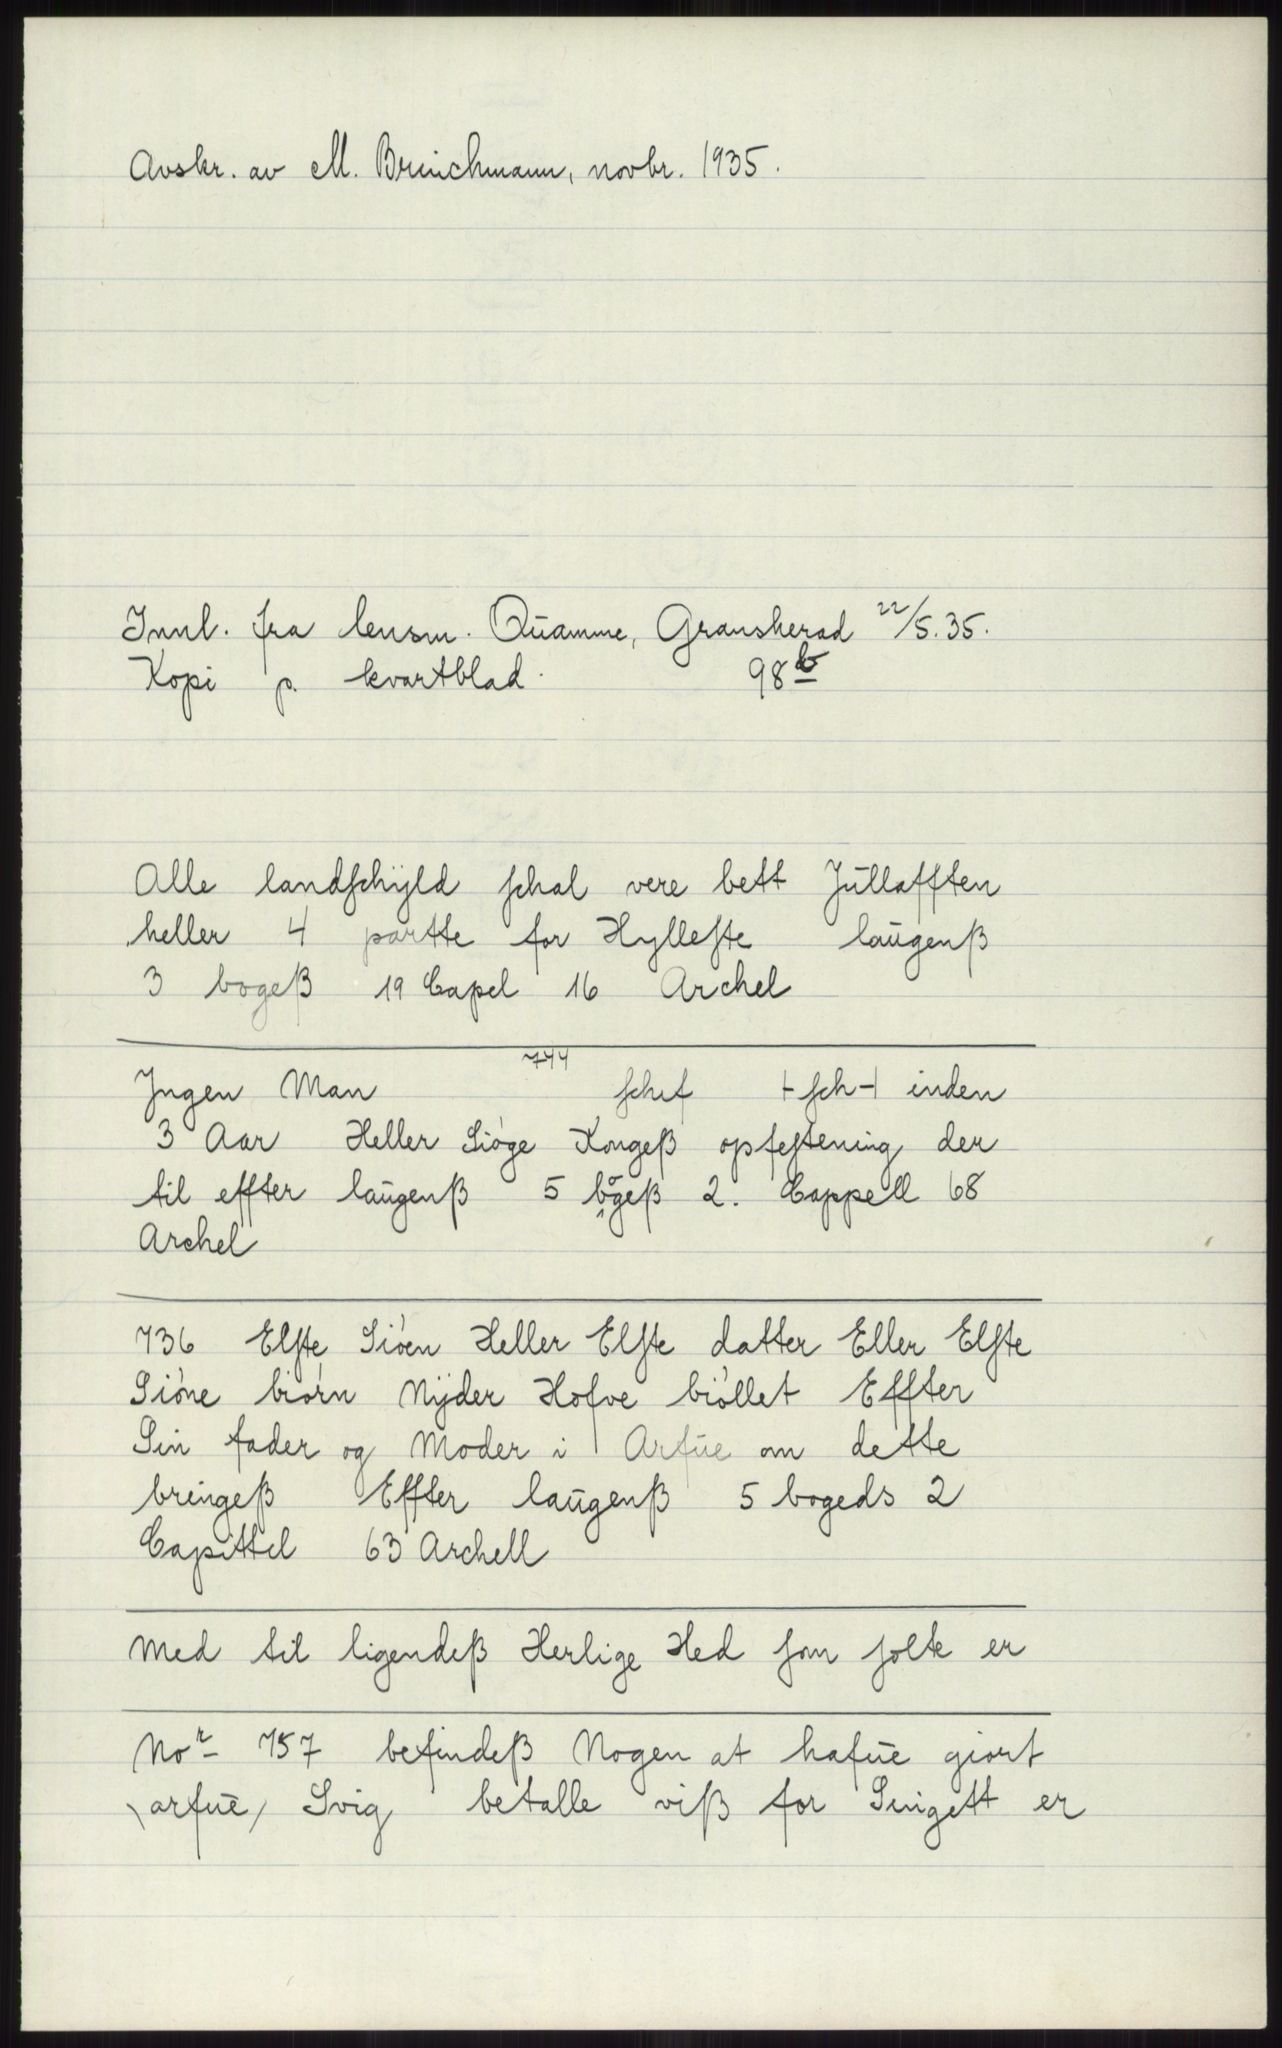 Avskr. av M. Brinchmann, novbr. 1935.
Innl. fra lensm. Qŭamme, Gransherad 22/5.35.
Kopi p. kvartblad. 98b
Alle landſchÿld ſchal vere bett Jŭllafften
heller 4 partte for Hylleſte laŭgenß
3 bogeß 19 Capel 16 Archel
744
Jngen Man ſchif ⊢ſch⊣ inden
3 Aar Heller Siøge Kongeß opfeſtening der
til effter laŭgenß 5 bogeß 2. Cappell 68
Archel
736 Elſte Siøen Heller Elſte datter Eller Elſte
Siøne biørn Nÿder Hofve bøllet Effter
Sin fader og Moder i Arfŭe om dette
bringeß Effter laŭgenß 5 bogeds 2
Capittel 63 Archell
Med til ligendeß Herlige Hed ſom ſolte er
No r 757 befindeß Nogen at hafŭe giort
\arfŭe/ Svig betalle viß for Singett er